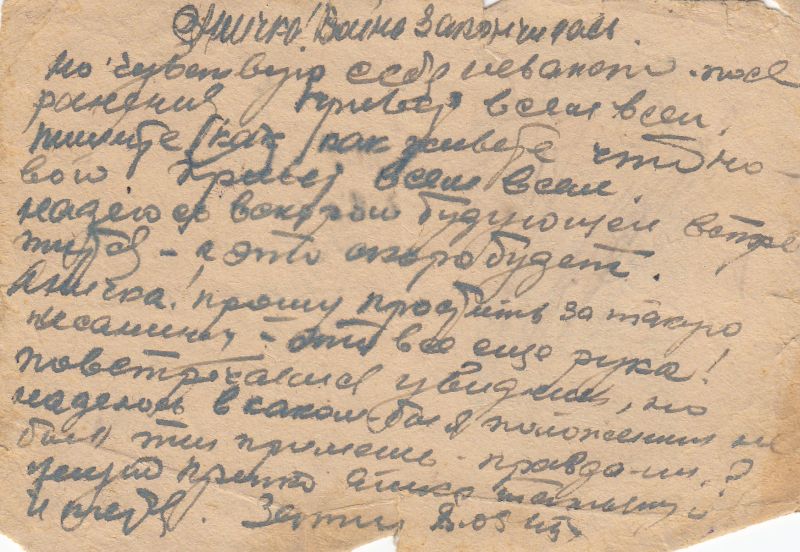 Аничка! Война закончилась
но чувствую себя неважно после
ранения Привет всем всем,
пишите как как живете что но-
вого Привет всем всем.
надеюсь вскором будующем встре
титься - и это скоро будет.
Аничка! прошу простить за такую
писанину - это все еще рука!
повстречаемся увидим, но
надеюсь в каком бы я положении не
был ты примешь - правда-ли?
целую крепко
и Затем